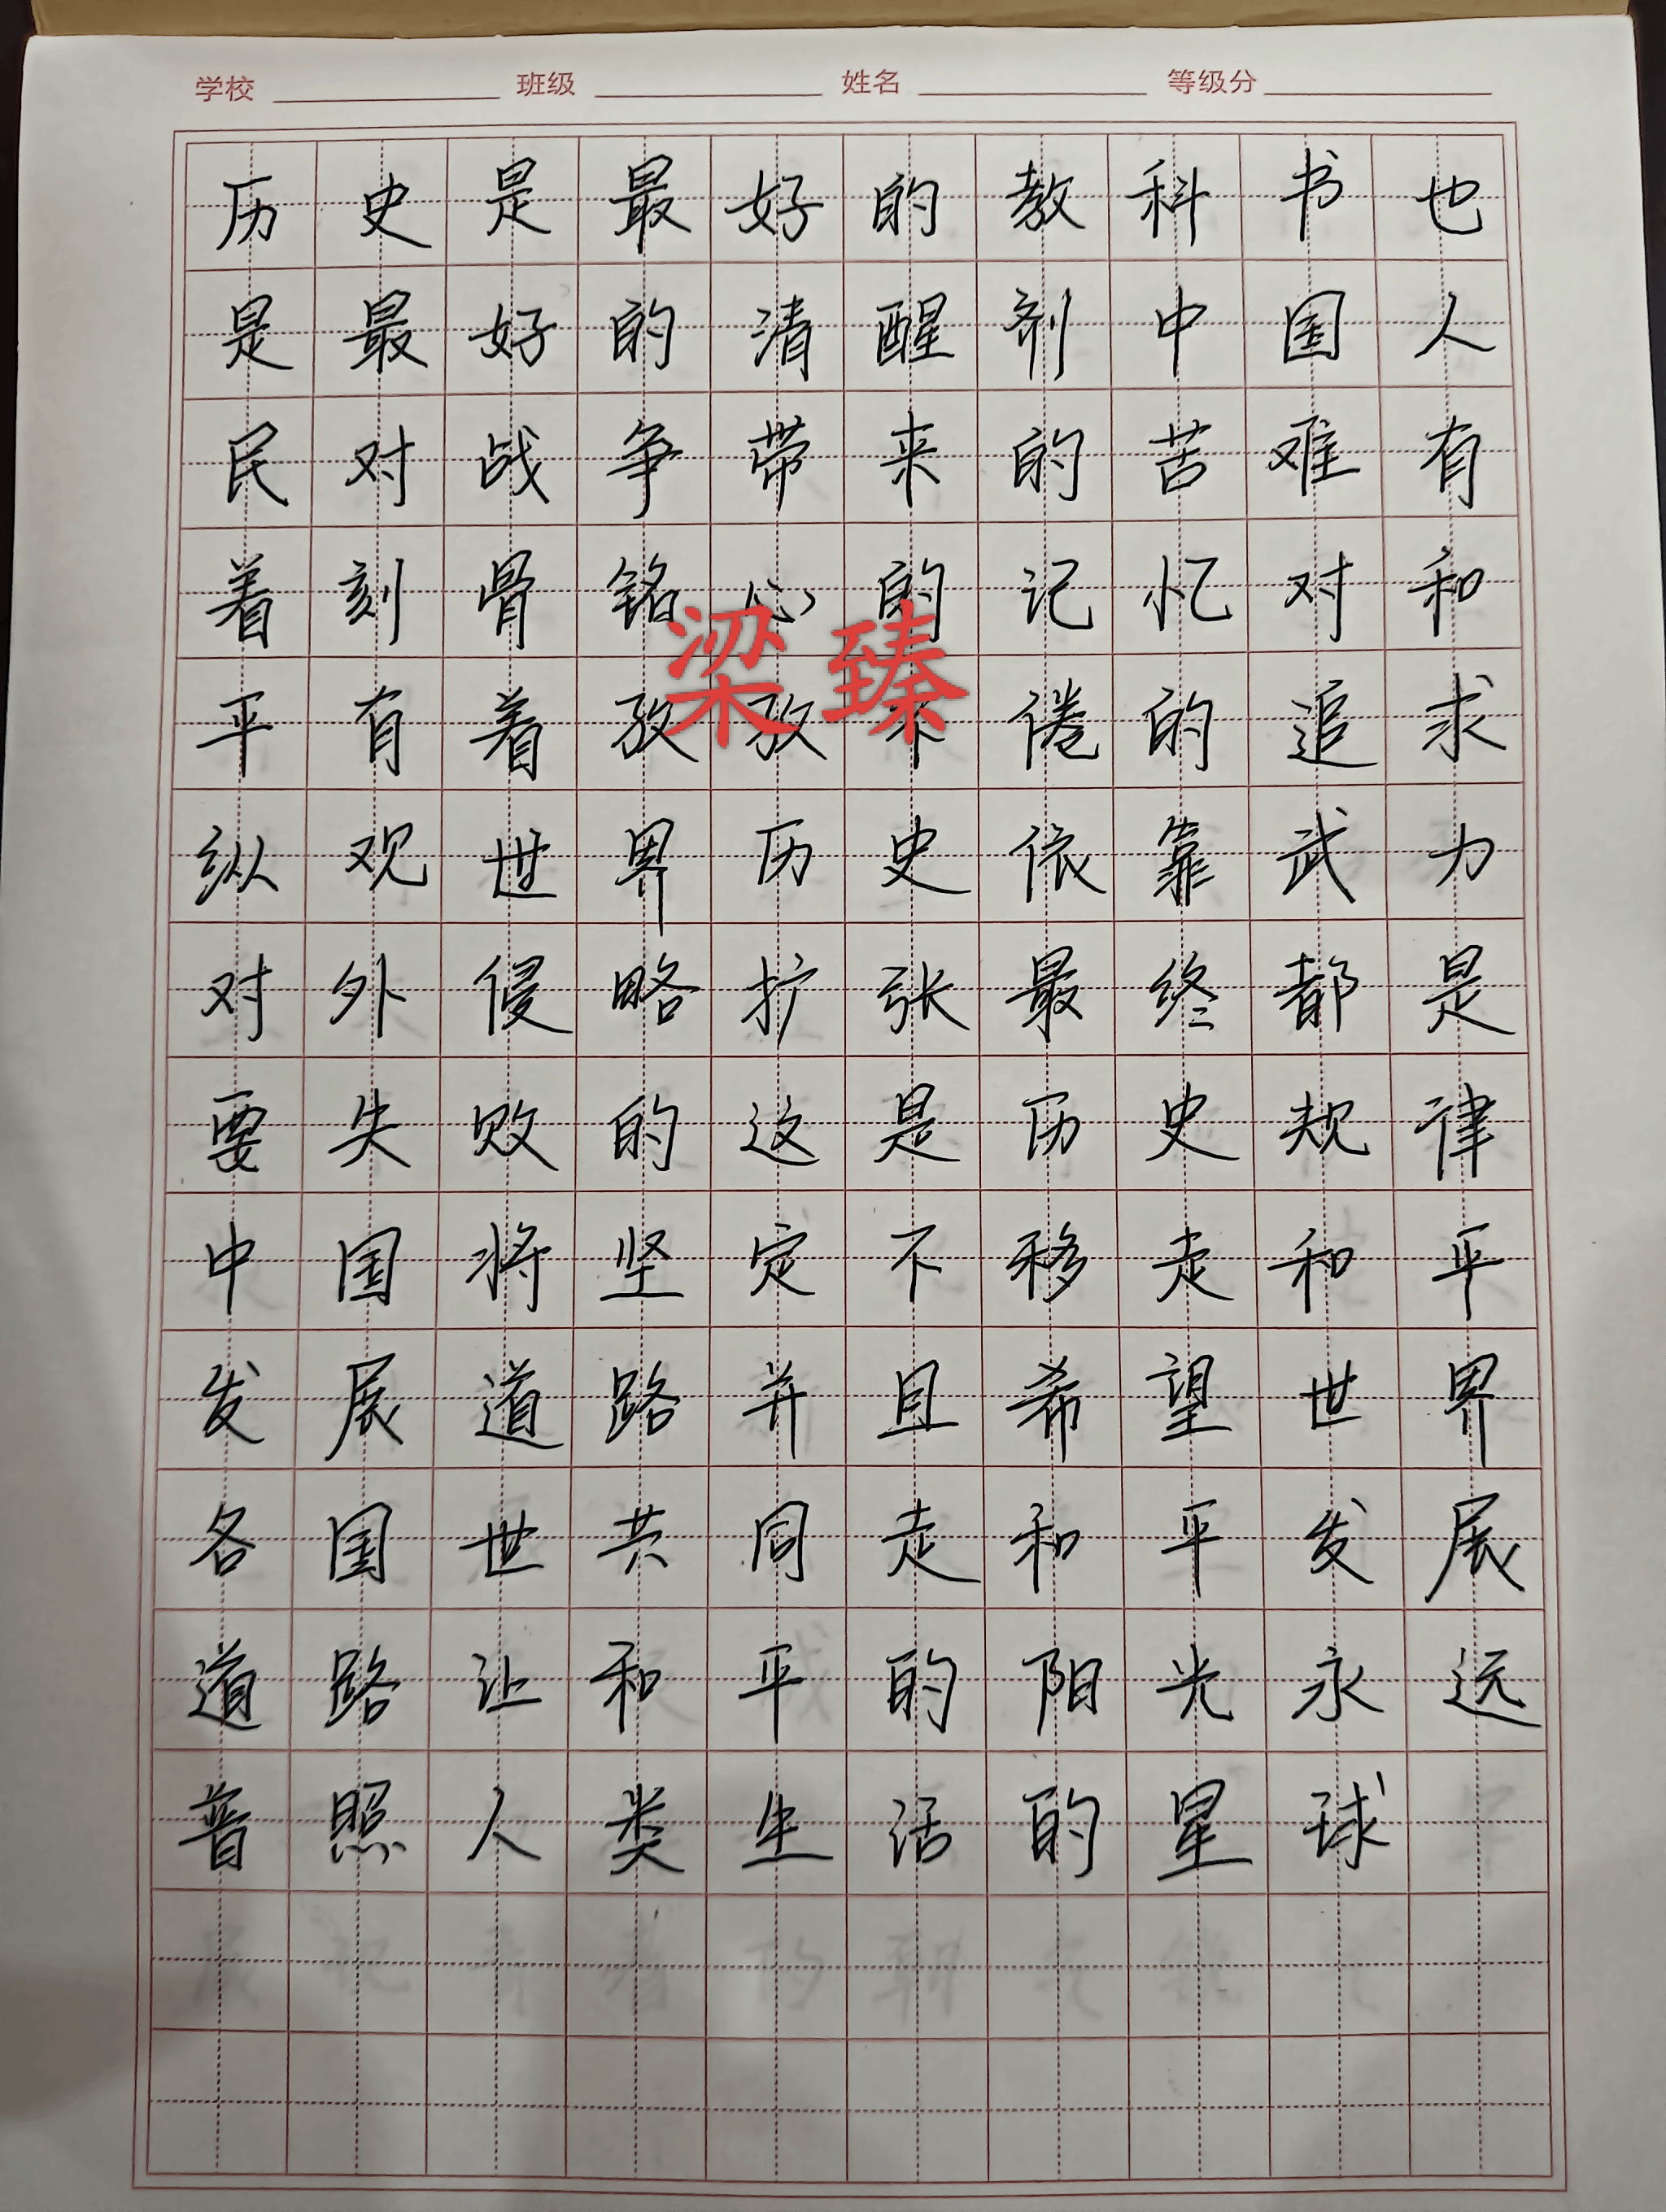 学校 班级 姓名 等级分
历史是最好的教科书也
是最好的清醒剂中国人
民对战争带来的苦难有
着刻骨铭心的记忆对和
梁臻
平有着孜孜不倦的追求
纵观世界历史依靠武力
对外侵略扩张最终都是
要失败的这是历史规律
中国将坚定不移走和平
发展道路并且希望世界
各国世共同走和平发展
道路让和平的阳光永远
普照人类生活的星球